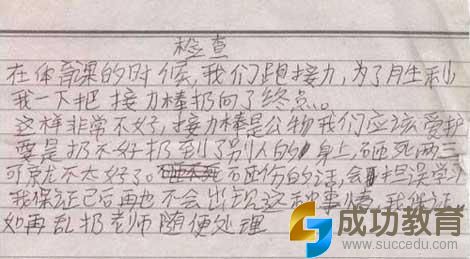 检查
在体育课的时候,我们跑接力,为了月生利
我一下把 接力棒扔向了终点。
这样非常不好,接力棒是公物我们应该爱护
要是扔不好扔到了别人的身上,砸死两三
可就不太好了。砸不死 砸伤的话,会耽误学习
我保证已后再也不会出现这种事情,我保证..
如再乱扔老师随便处理
成功教育
www.succedu.com